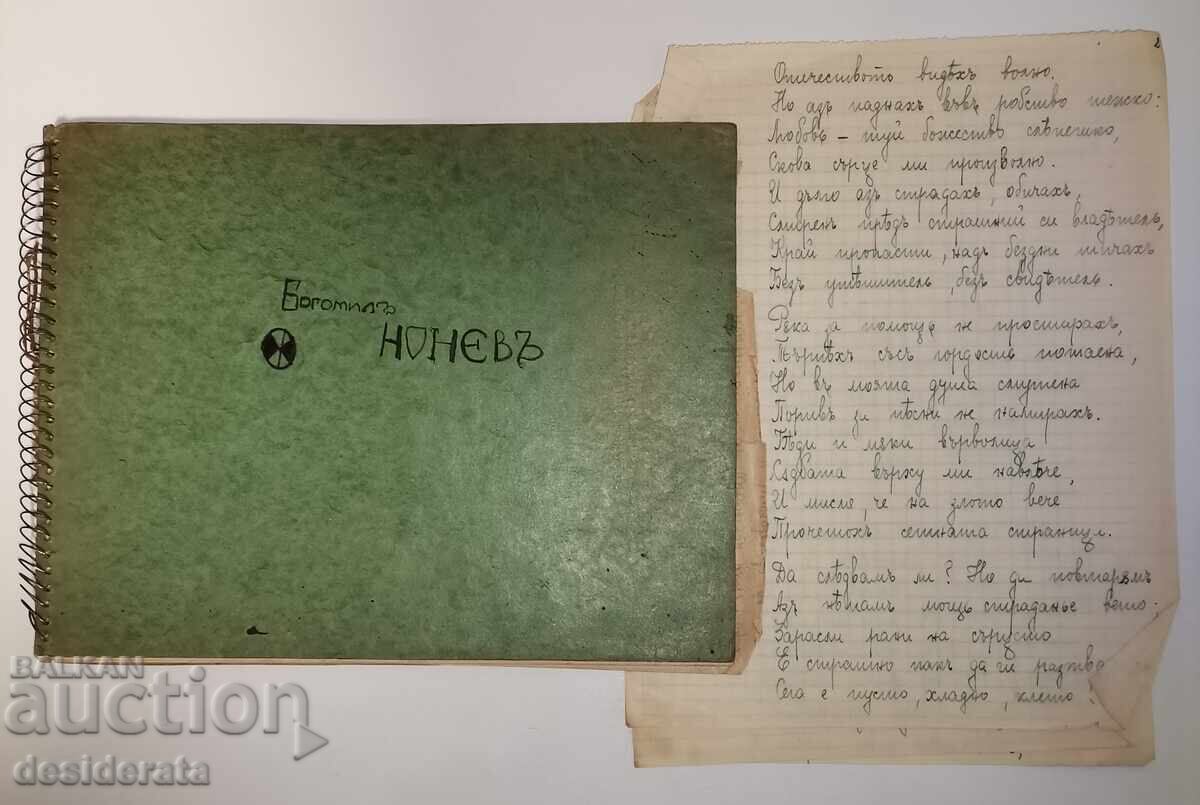 Богомилъ
НОНЕВЪ
2
Отечеството видѣхъ волно.
Но азъ паднахъ въвъ робство тежко:
Любовь – туй божество слѣпешко,
Скова сърце ми произволно.
И дълго азъ страдахъ, обичахъ,
Смиренъ прѣдъ страшний си владѣтель,
Край пропасти, надъ бездни тичахъ
Безъ утѣшитель, безъ свидѣтель.
Рѫка за помощь не простирахъ,
Търпѣхъ съсъ гордость потаена,
Но въ моята душа смутена
Поривъ за пѣсни не намирахъ.
Бѣди и мѫки върволица
Сѫдбата върху ми навлѣче,
И мисля, че на злото вече
Прочетохъ сетната страница.
Да слѣдвамъ ли? Но да повтарямъ
Азъ нѣмамъ мощь страданье вето.
Зарасли рани на сърцето
Е страшно пакъ да ги разтва
Сега е пусто, хладно, клето
BALKAN
auction
desiderata